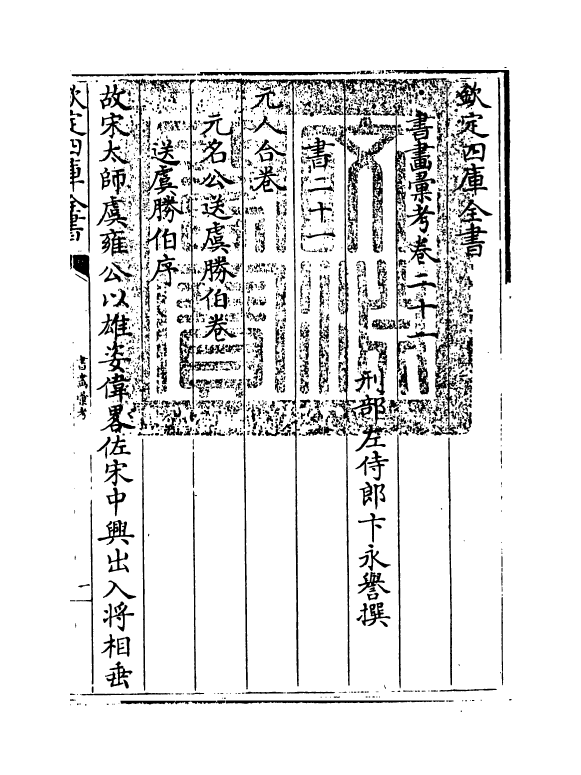 欽定四庫全書
書畫彙考卷二十一
刑部左侍郎卞永譽撰
書二十一
元人合卷
元名公送虞勝伯卷
送虞勝伯序
故宋太師虞雍公以雄姿偉畧佐宋中興出入將相垂
欽定四庫全書
書畫彙考
一